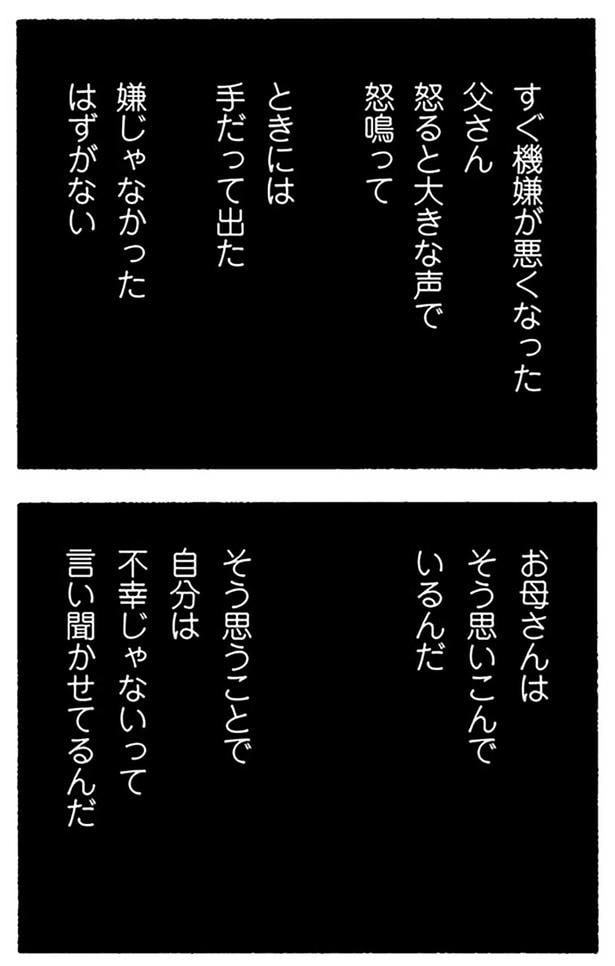 すぐ機嫌が悪くなった
父さん
怒ると大きな声で
怒鳴って
ときには
手だって出た
嫌じゃなかった
はずがない
お母さんは
そう思いこんで
いるんだ
そう思うことで
自分は
不幸じゃないって
言い聞かせてるんだ